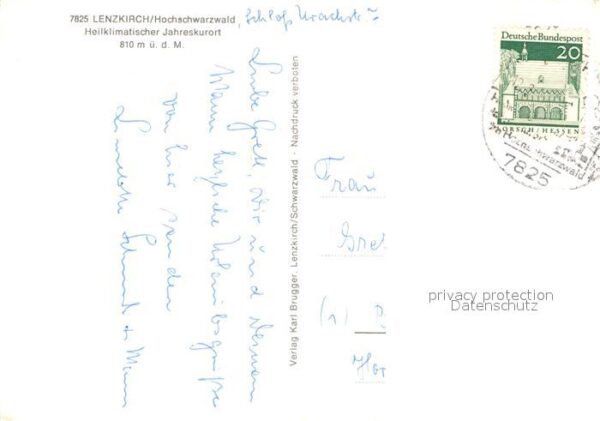 7825 LENZKIRCH/Hochschwarzwald, Schloß Urach
Heilklimatischer Jahreskurort
810 m ü. d. M.
Liebe Gretl, Dir und Deinem
Mann herzliche Urlaubsgrüße
von hier senden
Schmid + Mann
Verlag Karl Brugger, Lenzkirch/Schwarzwald - Nachdruck verboten
Deutsche Bundespost
20
LORSCH/HESSEN
Hochschwarzwald
7825
Frau
Gret
privacy protection
Datenschutz